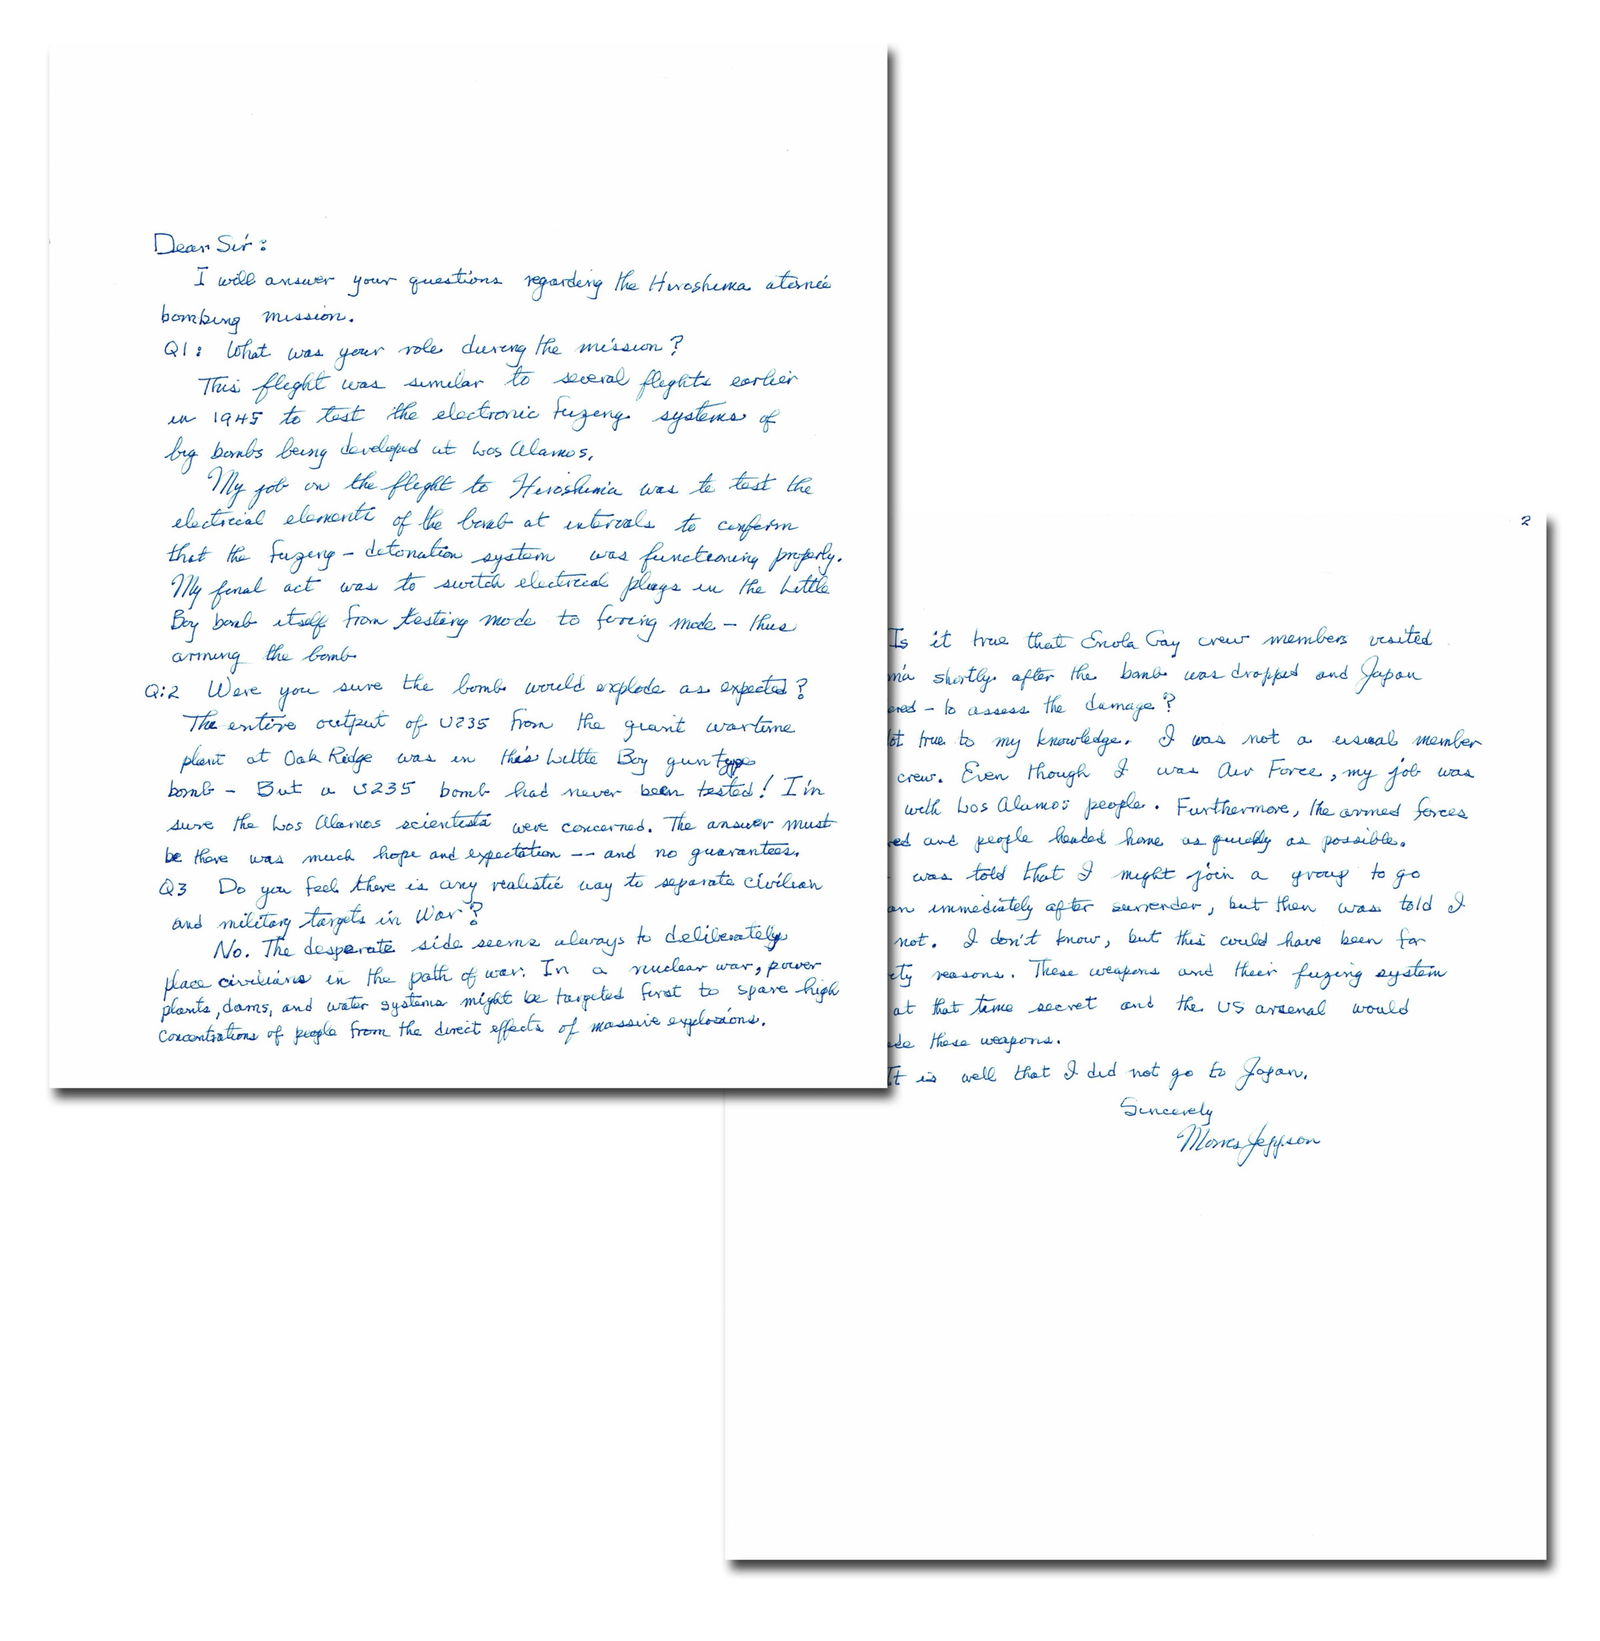 Dear Sir:
I will answer your questions regarding the Hiroshima atomic
bombing mission.
Q1: What was your role during the mission?
This flight was similar to several flights earlier
in 1945 to test the electronic fuzing systems of
big bombs being developed at Los Alamos.
My job on the flight to Hiroshima was to test the
electrical elements of the bomb at intervals to confirm
that the fuzing - detonation system was functioning properly.
My final act was to switch electrical plugs in the Little
Boy bomb itself from testing mode to firing mode - thus
arming the bomb
Q:2 Were you sure the bomb would explode as expected?
The entire output of U235 from the giant wartime
plant at Oak Ridge was in this Little Boy gun type
bomb - But a U235 bomb had never been tested! I'm
sure the Los Alamos scientists were concerned. The answer must
be there was much hope and expectation -- and no guarantees.
Q3 Do you feel there is any realistic way to separate civilian
and military targets in War?
No. The desperate side seems always to deliberately
place civilians in the path of war. In a nuclear war, power
plants, dams, and water systems might be targeted first to spare high
concentrations of people from the direct effects of massive explosions.
2
Is it true that Enola Gay crew members visited
ma shortly after the bomb was dropped and Japan
ered - to assess the damage?
ot true to my knowledge. I was not a usual member
crew. Even though I was Air Force, my job was
with Los Alamos people. Furthermore, the armed forces
ed and people headed home as quickly as possible.
was told that I might join a group to go
an immediately after surrender, but then was told I
not. I don't know, but this could have been for
ety reasons. These weapons and their fuzing system
at that time secret and the US arsenal would
de these weapons.
It is well that I did not go to Japan.
Sincerely
Morris Jeppson